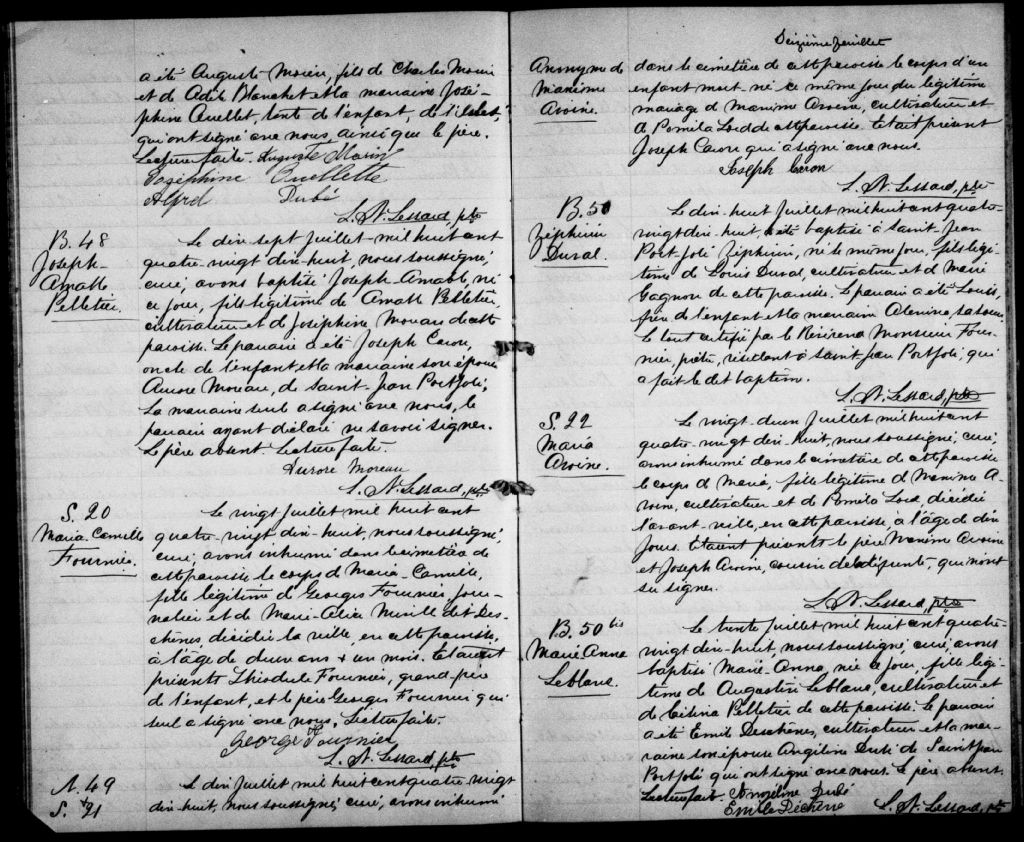 a été Auguste Morin, fils de Charles Morin
et de Adèle Blanchet et la marraine José-
phine Ouellet, tante de l'enfant, de l'Islet,
qui ont signé avec nous, ainsi que le père.
Lecture faite. Auguste Morin
Joséphine Ouellette
Alfred Dubé
L. N. Lessard, ptre
B. 48
Joseph-
Amable
Pelletier.
Le dix-sept Juillet mil huit cent
quatre-vingt dix-huit, nous soussigné,
curé, avons baptisé Joseph-Amable, né
ce jour, fils légitime de Amable Pelletier,
cultivateur et de Joséphine Moreau de cette
paroisse. Le parrain a été Joseph Caron,
oncle de l'enfant et la marraine son épouse
Aurore Moreau, de Saint-Jean Port Joli;
La marraine seule a signé avec nous, le
parrain ayant déclaré ne savoir signer.
Le père absent. Lecture faite.
Aurore Moreau
L. N. Lessard, ptre
S. 20
Maria-Camille
Fournier.
Le vingt Juillet mil huit cent
quatre-vingt dix-huit, nous soussigné,
curé, avons inhumé dans le cimetière de
cette paroisse le corps de Maria-Camille,
fille légitime de Georges Fournier, jour-
nalier et de Marie-Alice Miville dit Des-
chênes, décédée la veille, en cette paroisse,
à l'âge de deux ans & un mois. Etaient
présents Théodule Fournier, grand-père
de l'enfant, et le père Georges Fournier qui
seul a signé avec nous. Lecture faite.
George Fournier
L. N. Lessard, ptre
A. 49
S. 21
Le dix Juillet mil huit cent quatre vingt
dix-huit, nous soussigné, curé, avons inhumé
Dixième feuillet
Anonyme de
Maxime
Avoine.
dans le cimetière de cette paroisse le corps d'un
enfant mort né ce même jour du légitime
mariage de Maxime Avoine, cultivateur et
de Romila Lord de cette paroisse. Etait présent
Joseph Caron qui a signé avec nous.
Joseph Caron
L. N. Lessard, ptre
B. 50
Zéphirin
Duval.
Le dix-huit Juillet mil huit cent quatre-
vingt dix-huit, a été baptisé à Saint Jean
Port Joli Zéphirin, né le même jour, fils légi-
time de Louis Duval, cultivateur et de Marie
Gagnon de cette paroisse. Le parrain a été Louis,
frère de l'enfant et la marraine sa soeur.
Le tout certifié par le Révérend Monsieur Four-
nier, prêtre, résidant à Saint Jean Port Joli, qui
a fait le dit baptême.
L. N. Lessard, ptre
S. 22
Maria
Avoine.
Le vingt-deux Juillet mil huit cent
quatre-vingt dix-huit, nous soussigné, curé,
avons inhumé dans le cimetière de cette paroisse
le corps de Maria, fille légitime de Maxime A-
voine, cultivateur et de Romila Lord décédée
l'avant-veille, en cette paroisse, à l'âge de dix
jours. Etaient présents le père Maxime Avoine
et Joseph Avoine, cousin de la défunte, qui n'ont
su signer.
L. N. Lessard, ptre
B. 50 bis
Marie Anna
Leblanc.
Le trente Juillet mil huit cent quatre
vingt dix-huit, nous soussigné, curé, avons
baptisé Marie-Anna, née ce jour, fille légi-
time de Augustin Leblanc, cultivateur et
de Pelletier de cette paroisse. Le parrain
a été Emile Deschênes, cultivateur et la mar-
raine son épouse Angéline Dubé de Saint Jean
Port Joli qui ont signé avec nous. Le père absent.
Lecture faite. Angéline Dubé
Emile Dechene L. N. Lessard, ptre